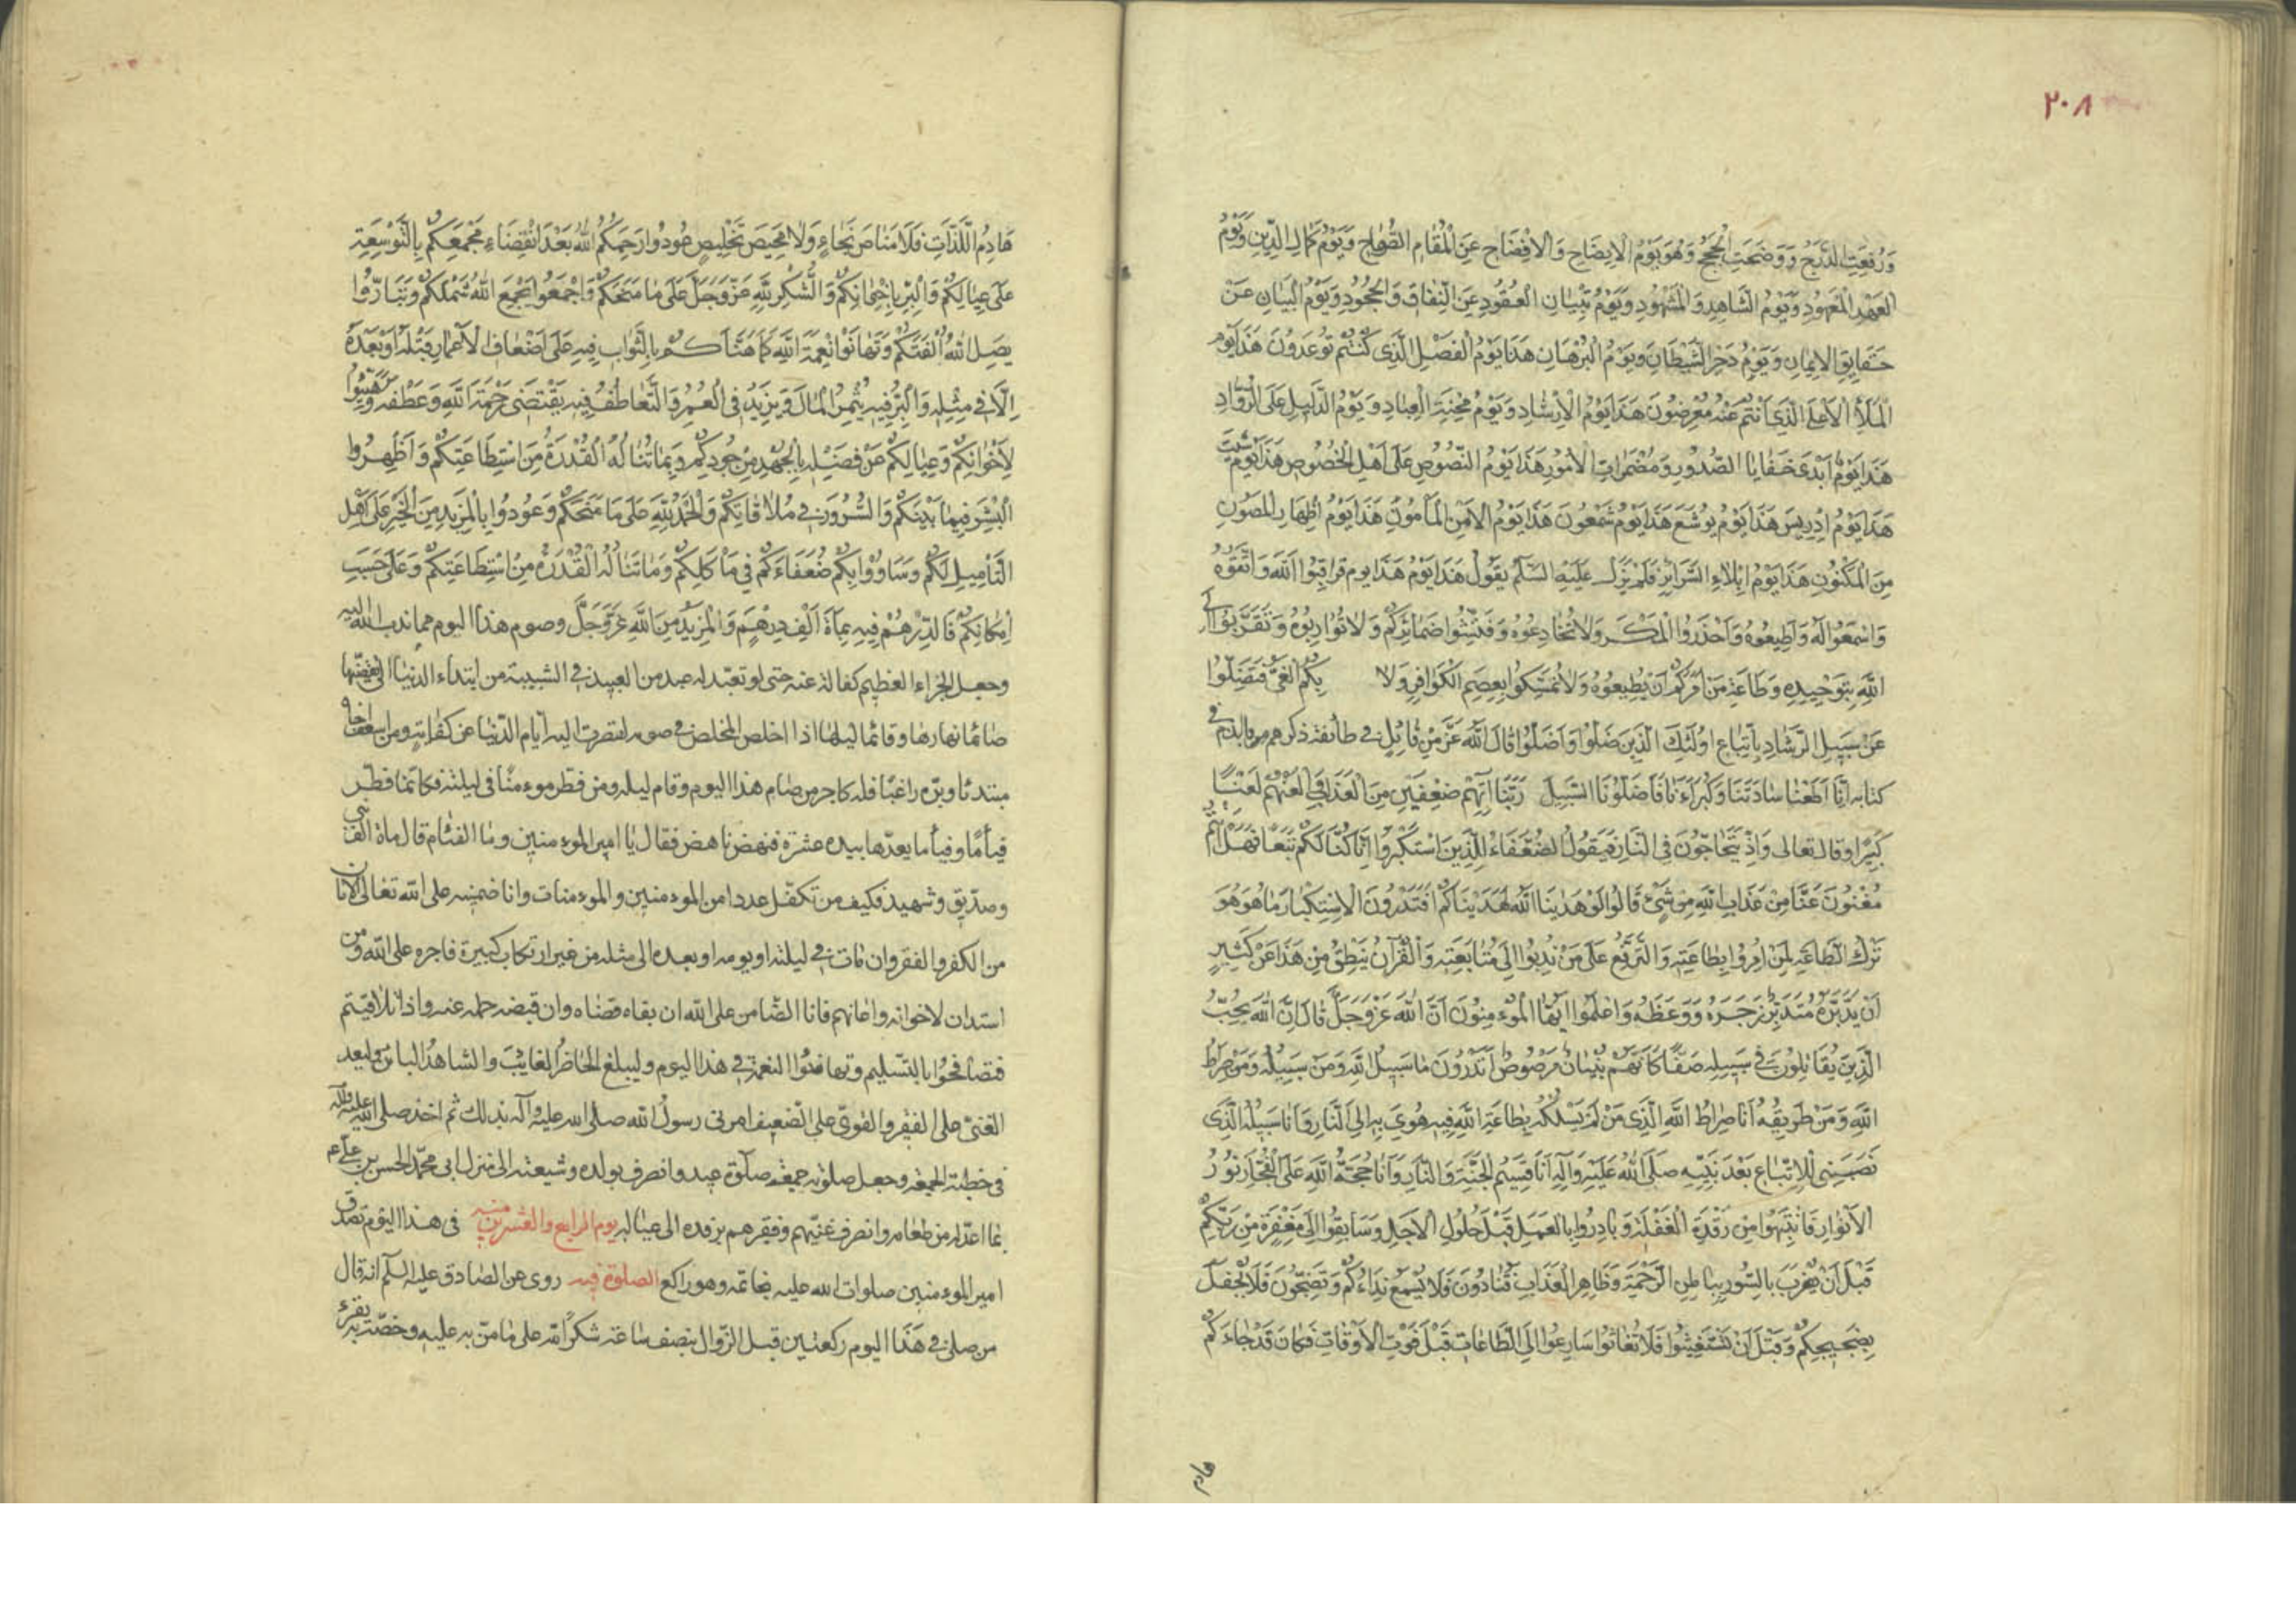 ٢٠٨
وَرُفِعَتِ الدَّرَجُ وَوَضَحَتِ الْحُجَجُ وَهُوَ يَوْمُ الْاِيضَاحِ وَالْاِفْصَاحِ عَنِ الْمَقَامِ الصُّرَاحِ وَيَوْمُ كَمَالِ الدِّينِ وَيَوْمُ
الْعَهْدِ الْمَعْهُودِ وَيَوْمُ الشَّاهِدِ وَالْمَشْهُودِ وَيَوْمُ تِبْيَانِ الْعُقُودِ عَنِ النِّفَاقِ وَالْجُحُودِ وَيَوْمُ الْبَيَانِ عَنْ
حَقَايِقِ الْاِيمَانِ وَيَوْمُ دَحْرِ الشَّيْطَانِ وَيَوْمُ الْبُرْهَانِ هَذَا يَوْمُ الْفَصْلِ الَّذِى كُنْتُمْ تُوعَدُونَ هَذَا يَوْمُ
الْمَلَأِ الْاَعْلَى الَّذِى اَنْتُمْ عَنْهُ مُعْرِضُونَ هَذَا يَوْمُ الْاِرْشَادِ وَيَوْمُ مِحْنَةِ الْعِبَادِ وَيَوْمُ الدَّلِيلِ عَلَى الرُّوَّادِ
هَذَا يَوْمٌ اَبْدَى خَفَايَا الصُّدُورِ وَمُضْمَرَاتِ الْاُمُورِ هَذَا يَوْمُ النُّصُوصِ عَلَى اَهْلِ الْخُصُوصِ هَذَا يَوْمُ شِيثَ
هَذَا يَوْمُ اِدْرِيسَ هَذَا يَوْمُ يُوشَعَ هَذَا يَوْمُ شَمْعُونَ هَذَا يَوْمُ الْاَمْنِ الْمَأْمُونِ هَذَا يَوْمُ اِظْهَارِ الْمَصُونِ
مِنَ الْمَكْنُونِ هَذَا يَوْمُ اِبْلَاءِ السَّرَائِرِ فَلَمْ يَزَلْ عَلَيْهِ السَّلَمُ يَقُولُ هَذَا يَوْمُ هَذَا يوم فَرَاقِبُوا اللَّهَ وَاتَّقُوهُ
وَاسْمَعُوا لَهُ وَاَطِيعُوهُ وَاحْذَرُوا الْمَكْرَ وَلَا تُخَادِعُوهُ وَفَتِّشُوا ضَمَائِرَكُمْ وَلَا تُوَارِبُوهُ وَتَقَرَّبُوا اِلَى
اللَّهِ بِتَوْحِيدِهِ وَطَاعَةِ مَنْ اَمَرَكُمْ اَنْ تُطِيعُوهُ وَلَا تُمْسِكُوا بِعِصَمِ الْكَوَافِرِ وَلَا بِكُمُ الْغَىُّ فَتَضِلُّوا
عَنْ سَبِيلِ الرَّشَادِ بِاتِّبَاعِ اُولَئِكَ الَّذِينَ ضَلُّوا وَاَضَلُّوا قَالَ اللَّهُ عَزَّ مِنْ قَائِلٍ فى طائفة ذكرهم بالذم فى
كتابه اِنَّا اَطَعْنَا سَادَتَنَا وَكُبَرَاءَنَا فَاَضَلُّونَا السَّبِيلَ رَبَّنَا آتِهِمْ ضِعْفَيْنِ مِنَ الْعَذَابِ وَالْعَنْهُمْ لَعْنًا
كَبِيرًا وقال تعالى وَاِذْ يَتَحَاجُّونَ فِى النَّارِ فَيَقُولُ الضُّعَفَاءُ لِلَّذِينَ اسْتَكْبَرُوا اِنَّا كُنَّا لَكُمْ تَبَعًا فَهَلْ اَنْتُمْ
مُغْنُونَ عَنَّا مِنْ عَذَابِ اللَّهِ مِنْ شَىْءٍ قَالُوا لَوْ هَدَينَا اللَّهُ لَهَدَيْنَاكُمْ اَفَتَدْرُونَ الْاِسْتِكْبَارَ مَا هُوَ هُوَ
تَرْكُ الطَّاعَةِ لِمَنْ اُمِرُوا بِطَاعَتِهِ وَالتَّرَفُّعُ عَلَى مَنْ نُدِبُوا اِلَى مُتَابَعَتِهِ وَالْقُرْآنُ يَنْطِقُ مِنْ هَذَا عَنْ كَثِيرٍ
اَنْ يَدَّبَّرَهُ مُتَدَبِّرٌ زَجَرَهُ وَوَعَظَهُ وَاعْلَمُوا اَيُّهَا الْمُوءْمِنُونَ اَنَّ اللَّهَ عَزَّ وَجَلَّ قَالَ اِنَّ اللَّهَ يُحِبُّ
الَّذِينَ يُقَاتِلُونَ فِى سَبِيلِهِ صَفًّا كَاَنَّهُمْ بُنْيَانٌ مَرْصُوصٌ اَتَدْرُونَ مَا سَبِيلُ اللَّهِ وَمَنْ سَبِيلُهُ وَمَنْ صِرَاطُ
اللَّهِ وَمَنْ طَرِيقُهُ اَنَا صِرَاطُ اللَّهِ الَّذِى مَنْ لَمْ يَسْلُكْهُ بِطَاعَةِ اللَّهِ فِيهِ هُوِىَ بِهِ اِلَى النَّارِ وَاَنَا سَبِيلُهُ الَّذِى
نَصَبَنِى لِلْاِتِّبَاعِ بَعْدَ نَبِيِّهِ صَلَّى اللهُ عَلَيْهِ وَآلِهِ اَنَا قَسِيمُ الْجَنَّةِ وَالنَّارِ وَاَنَا حُجَّةُ اللَّهِ عَلَى الْفُجَّارِ نُورُ
الْاَنْوَارِ فَانْتَبِهُوا مِنْ رَقْدَةِ الْغَفْلَةِ وَبَادِرُوا بِالْعَمَلِ قَبْلَ حُلُولِ الْاَجَلِ وَسَابِقُوا اِلَى مَغْفِرَةٍ مِنْ رَبِّكُمْ
قَبْلَ اَنْ يُضْرَبَ بِالسُّورِ بِبَاطِنِ الرَّحْمَةِ وَظَاهِرِ الْعَذَابِ فَتُنَادُونَ فَلَا يُسْمَعُ نِدَاءُكُمْ وَتَضِجُّونَ فَلَا يُحْفَلُ
بِضَجِيجِكُمْ وَقَبْلَ اَنْ تَسْتَغِيثُوا فَلَا تُغَاثُوا سَارِعُوا اِلَى الطَّاعَاتِ قَبْلَ فَوْتِ الْاَوْقَاتِ فَكَانَ قَدْ جَاءَكُمْ
هادم
هَادِمُ اللَّذَّاتِ فَلَا مَنَاصَ نَجَاءٍ وَلَا مَحِيصَ تَخْلِيصٍ عُودُوا رَحِمَكُمُ اللهُ بَعْدَ انْقِضَاءِ مَجْمَعِكُمْ بِالتَّوْسِعَةِ
عَلَى عِيَالِكُمْ وَالْبِرِّ بِاِخْوَانِكُمْ وَالشُّكْرِ لِلَّهِ عَزَّ وَجَلَّ عَلَى مَا مَنَحَكُمْ وَاجْمَعُوا يَجْمَعِ اللهُ شَمْلَكُمْ وَتَبَارُّوا
يَصِلِ اللهُ اُلْفَتَكُمْ وَتَهَانَوْا نِعْمَةَ اللَّهِ كَمَا هَنَّاَكُمْ بِالثَّوَابِ فِيهِ عَلَى اَضْعَافِ الْاَعْمَالِ قَبْلَهُ اَوْ بَعْدَهُ
اِلَّا فِى مِثْلِهِ وَالْبِرُّ فِيهِ يُثْمِرُ الْمَالَ وَيَزِيدُ فِى الْعُمُرِ وَالتَّعَاطُفُ فِيهِ يَقْتَضِى رَحْمَةَ اللَّهِ وَعَطْفَهُ وَهَيِّئُوا
لِاِخْوَانِكُمْ وَعِيَالِكُمْ عَنْ فَضْلِهِ بِالْجُهْدِ مِنْ جُودِكُمْ وَبِمَا تَنَالُهُ الْقُدْرَةُ مِنِ اسْتِطَاعَتِكُمْ وَاَظْهِرُوا
الْبُشْرَ فِيمَا بَيْنَكُمْ وَالسُّرُورَ فِى مُلَاقَاتِكُمْ وَالْحَمْدُ لِلَّهِ عَلَى مَا مَنَحَكُمْ وَعُودُوا بِالْمَزِيدِ مِنَ الْخَيْرِ عَلَى اَهْلِ
التَّأْمِيلِ لَكُمْ وَسَاوُوا بِكُمْ ضُعَفَاءَكُمْ فِى مَأْكَلِكُمْ وَمَا تَنَالُهُ الْقُدْرَةُ مِنِ اسْتِطَاعَتِكُمْ وَعَلَى حَسَبِ
اِمْكَانِكُمْ فَالدِّرْهَمُ فِيهِ بِمِأَةِ اَلْفِ دِرْهَمٍ وَالْمَزِيدُ مِنَ اللَّهِ عَزَّ وَجَلَّ وصوم هذا اليوم مما ندب الله اليه
وجعل الجزاء العظيم كفالة عنه حتى لو تعبّد له عبد من العبيد فى الشبيبة من ابتداء الدنيا الى تقضّيها
صائما نهارها وقائما ليلها اذا اخلص المخلص فى صومه لقصرت اليه ايام الدّنيا عن كفاية ومن اسعف اخاه
مبتدئا وبرّه راغبًا فله كاجر من صام هذا اليوم وقام ليله ومن فطر موءمنًا فى ليلته فكانّما فطّر
فيأمًا وفيأما يعدّها بيده عشرة فنهض ناهض فقال يا امير الموءمنين وما الفئام قال ماة الف نبى
وصدّيق وشهيد فكيف من تكفّل عددا من الموءمنين والموءمنات وانا ضمينه على الله تعالى الامان
من الكفر والفقر وان مات فى ليلته او يومه او بعده الى مثله من غير ارتكاب كبيرة فاجره على الله ومن
استدان لاخوانه واعانهم فانا الضّامن على الله ان بقاه قضاه وان قبضه حمله عنه واذا تلاقيتم
فتصافحوا بالتّسليم وتهانوا النعمة فى هذا اليوم وليبلغ الحاضُر الغايبَ والشاهدُ البائن وليعد
الغنىّ على الفقير والقوىّ على الضّعيف امرنى رسولُ الله صلّى الله عليه وآله بذلك ثم اخذ صلى الله عليه وآله
فى خطبة الجمعة وجعل صلوته جمعة صلوة عيد وانصرف بولده وشيعته الى منزل ابى محمّد الحسن بن على ع
بما اعدّ له من طعامه وانصرف غنيّهم وفقيرهم برفده الى عياله يوم الرابع والعشرين منه فى هذا اليوم تصدق
امير الموءمنين صلوات الله عليه بخاتمه وهو راكع الصلوة فيه روى عن الصّادق عليه السلم انه قال
من صلى فى هَذَا اليوم ركعتين قبل الزّوال بنصف ساعة شكرًا لله على ما منّ به عليه وخصّه به يقرء